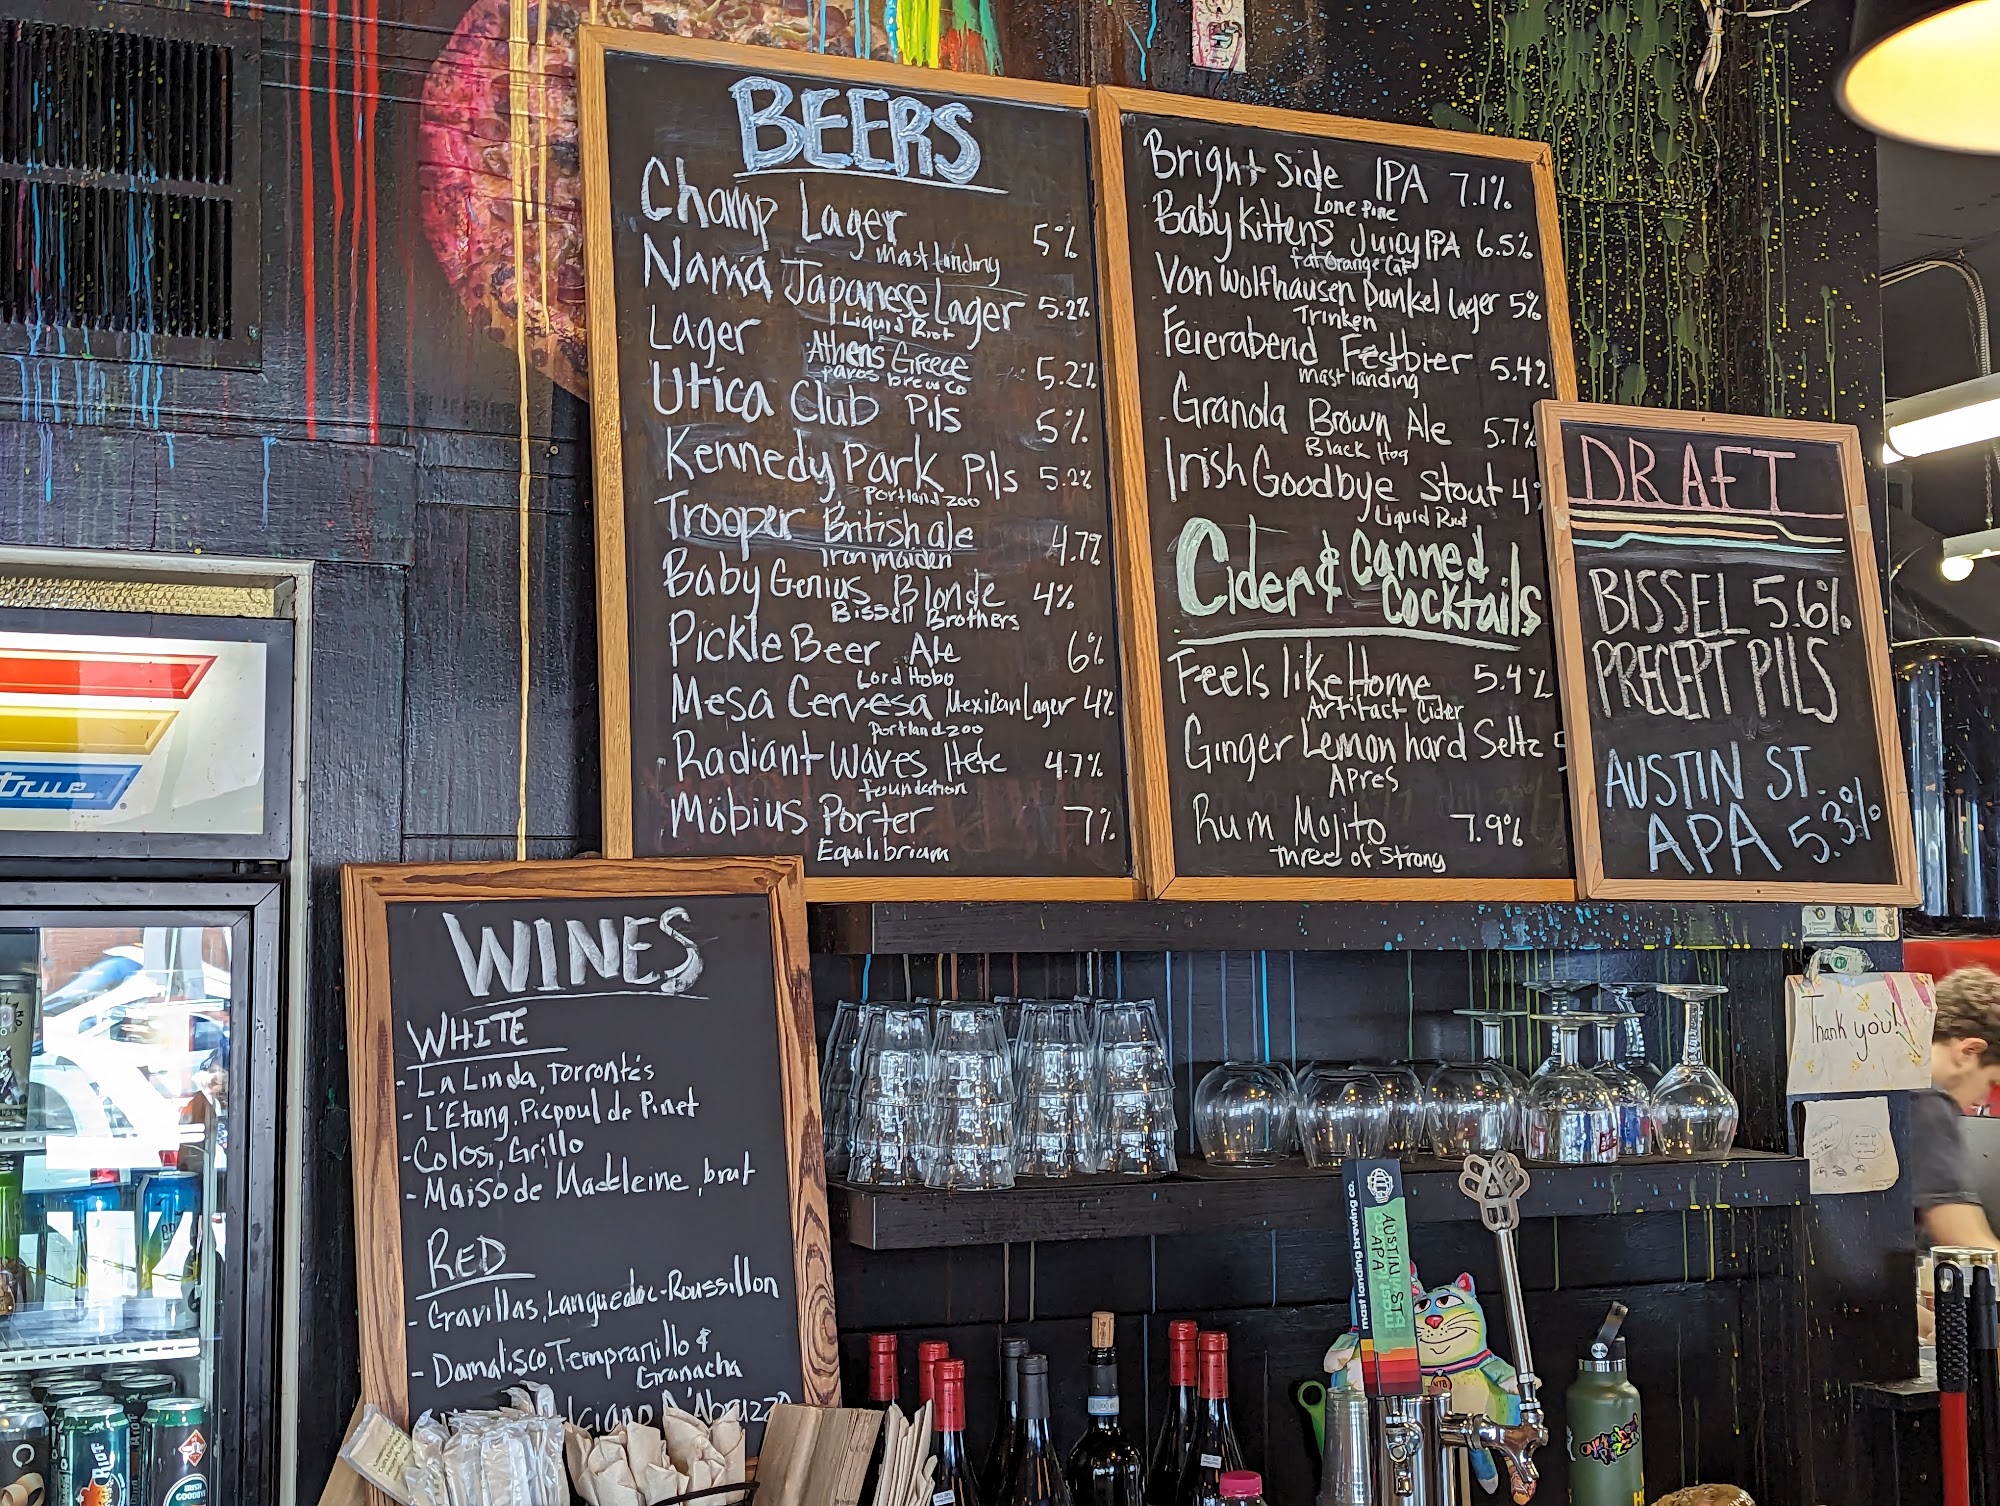 BEERS
Champ Lager 5%
Mast landing
Nama Japanese Lager 5.2%
Liquid Riot
Lager Athens Greece 5.2%
paros brew co
Utica Club Pils 5%
Kennedy Park Pils 5.2%
Portland zoo
Trooper British ale 4.7%
Iron maiden
Baby Genius Blonde 4%
Bissell Brothers
Pickle Beer Ale 6%
Lord Hobo
Mesa Cervesa Mexican Lager 4%
Portland zoo
Radiant Waves Hefe 4.7%
foundation
Möbius Porter 7%
Equilibrium
Bright Side IPA 7.1%
Lone Pine
Baby Kittens Juicy IPA 6.5%
fat Orange Cat
Von Wolfhausen Dunkel lager 5%
Trinken
Feierabend Festbier 5.4%
Mast landing
Granola Brown Ale 5.7%
Black Hog
Irish Goodbye Stout 4
Liquid Riot
Cider & Canned
Cocktails
Feels like Home 5.4%
Artifact Cider
Ginger Lemon hard Seltz 5
Apres
Rum Mojito 7.9%
Three of Strong
DRAFT
BISSEL 5.6%
PRECEPT PILS
AUSTIN ST.
APA 5.3%
WINES
WHITE
- La Linda, Torrontés
- L'Etang, Picpoul de Pinet
- Colosi, Grillo
- Maiso de Madeleine, brut
RED
- Gravillas, Languedoc-Roussillon
- Damalisco, Tempranillo &
Granacha
D'Abruzzo
true
Thank you!
mast landing brewing co.
AUSTIN ST
APA
RIOT
IRISH
GOODBYE